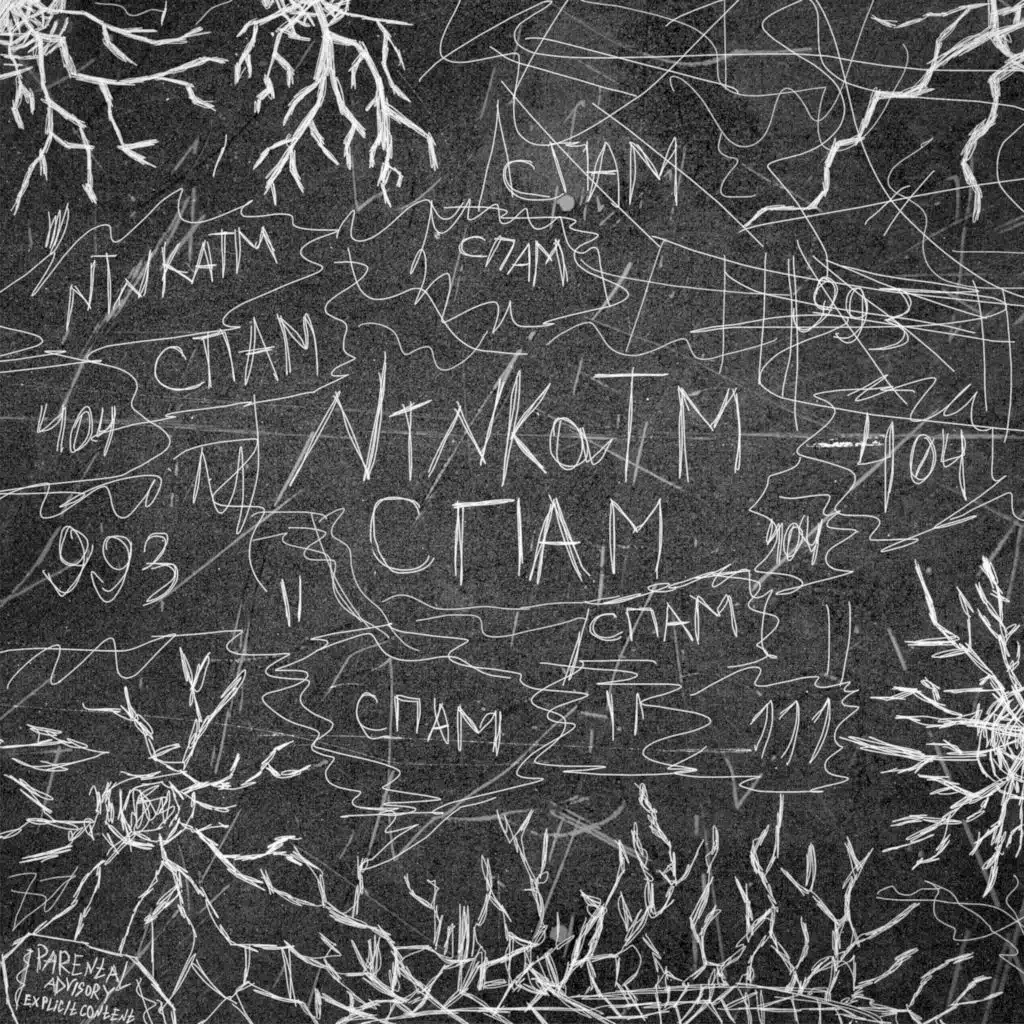 СПАМ
СПАМ
NTNKATM
СПАМ
NTNKaTM
404
404
СПАМ
993
404
СПАМ
СПАМ
111
PARENTAL
ADVISORY
EXPLICIT CONTENT